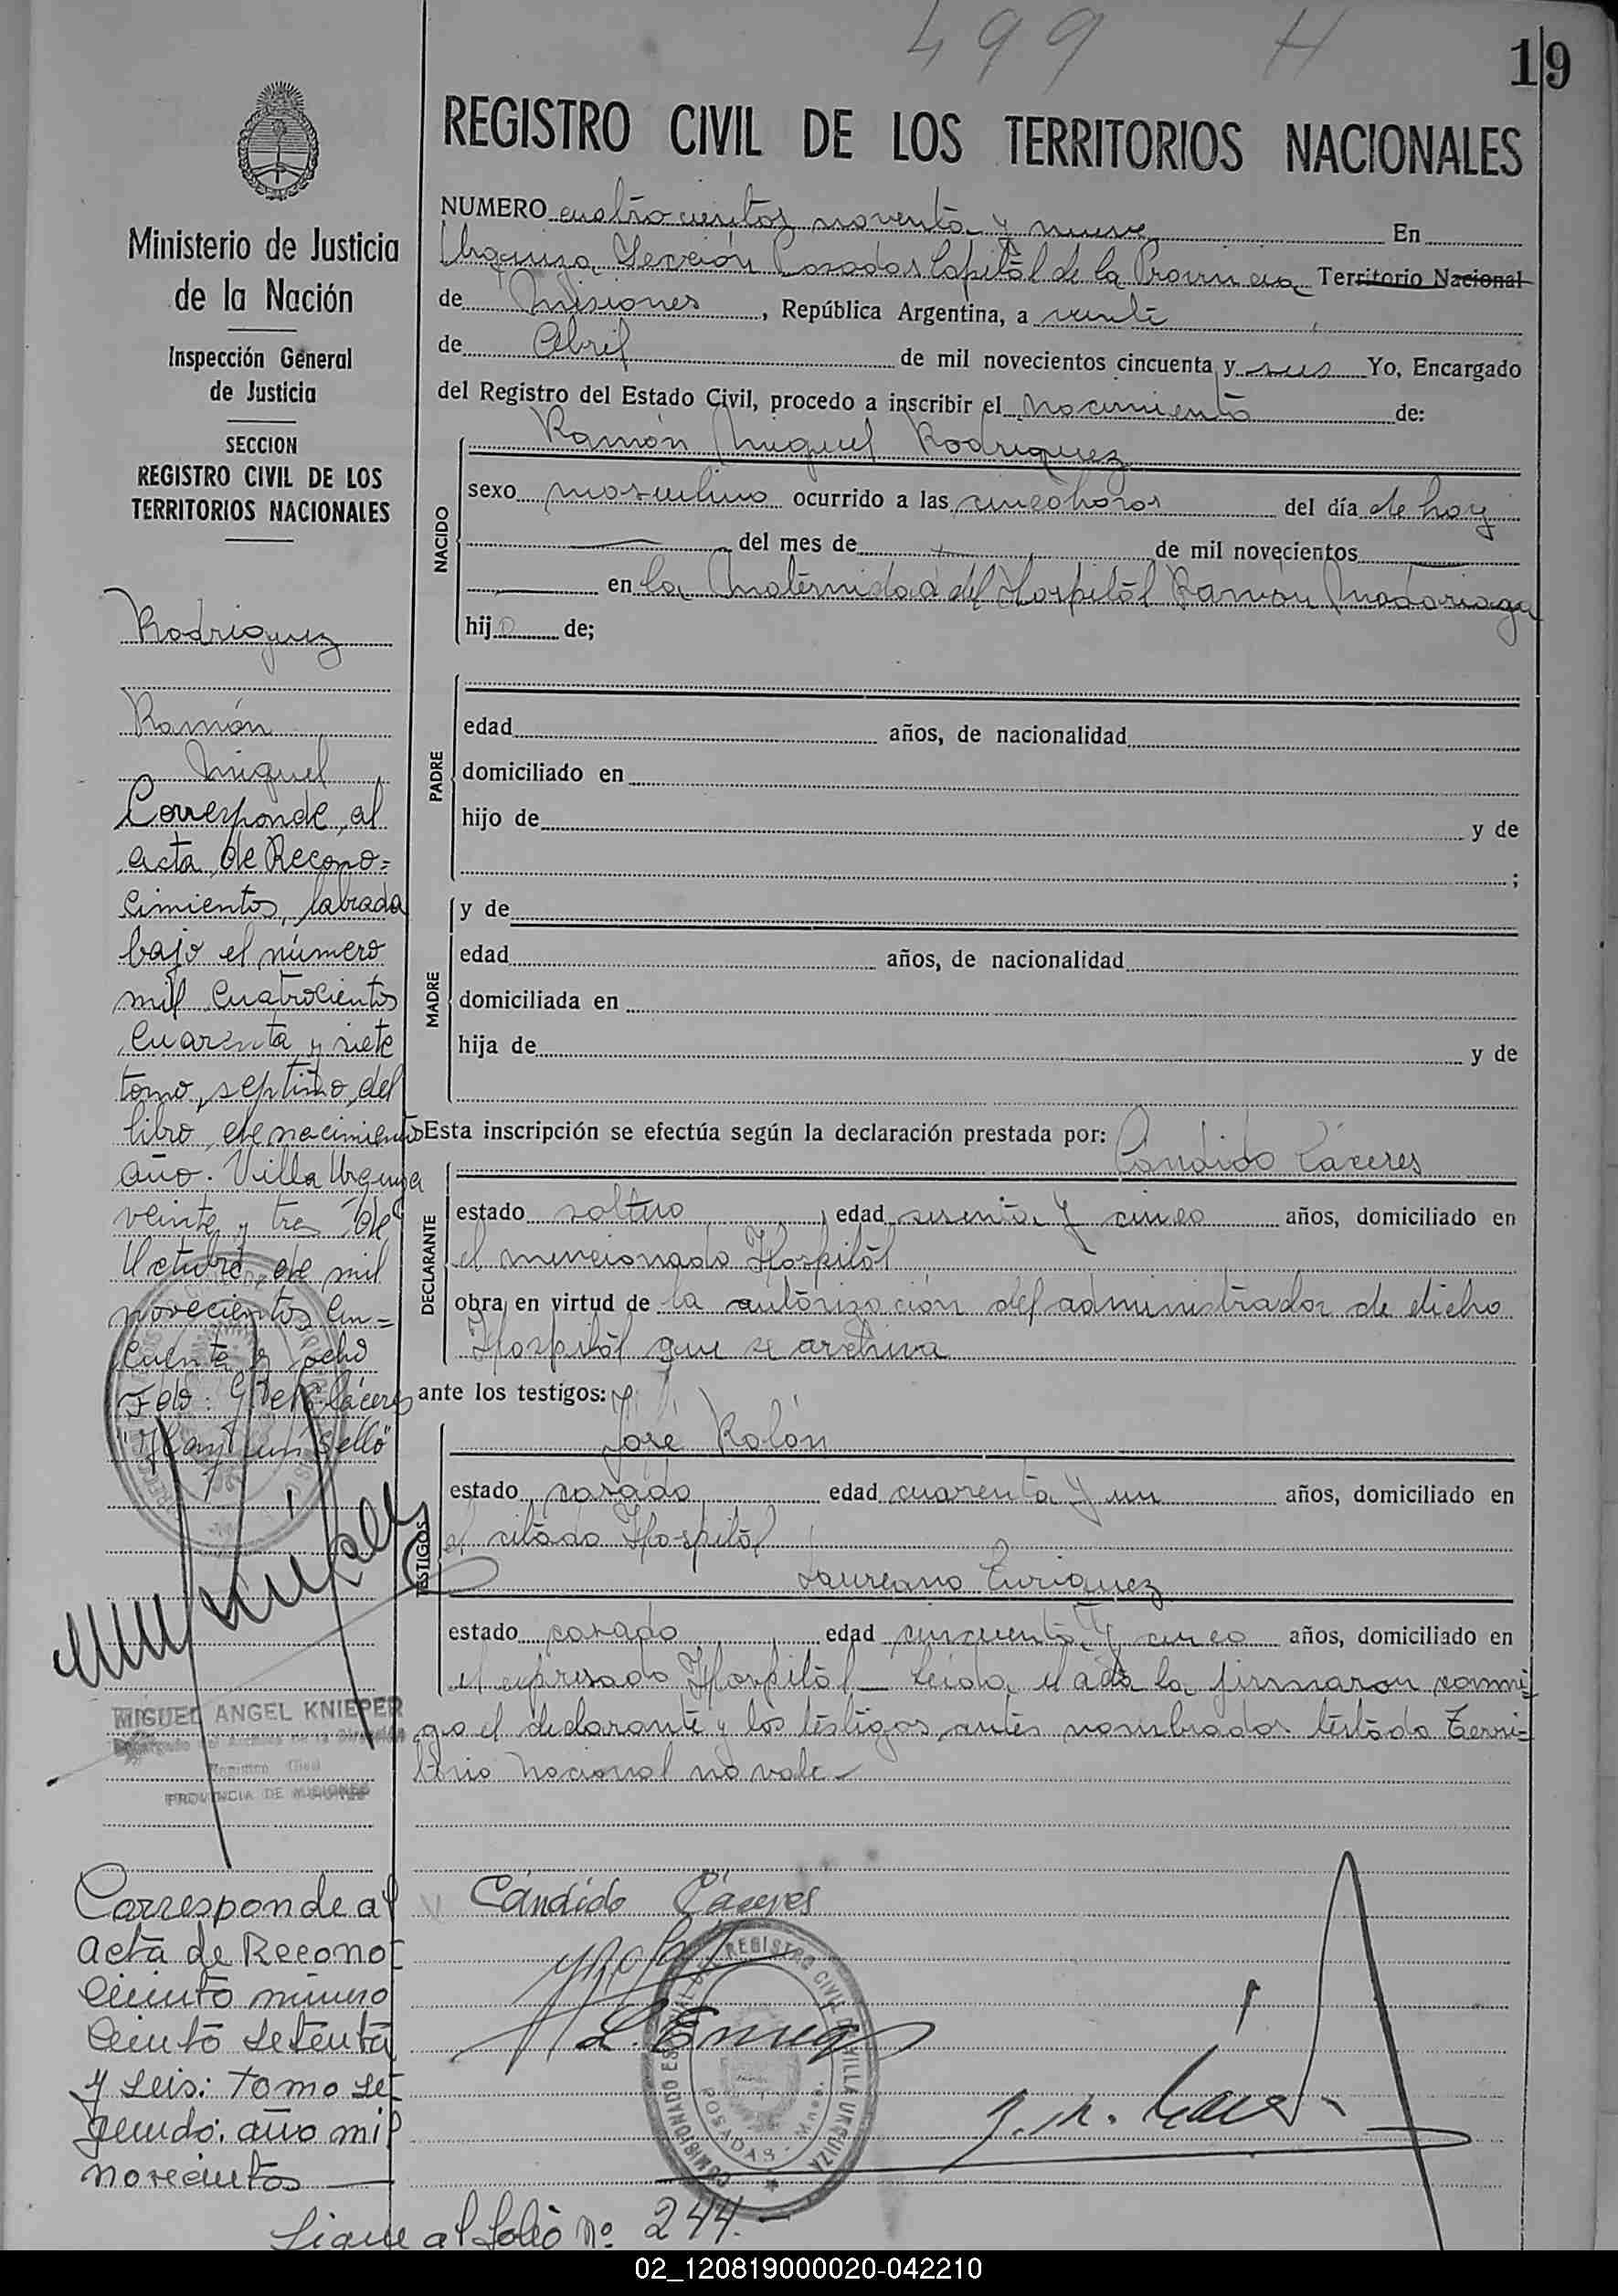 499 H
19
REGISTRO CIVIL DE LOS TERRITORIOS NACIONALES
Ministerio de Justicia
de la Nación
Inspección General
de Justicia
SECCION
REGISTRO CIVIL DE LOS
TERRITORIOS NACIONALES
Rodriguez
Ramón
Miguel
Corresponde al
acta de Recono=
cimientos, labrada
bajo el número
mil cuatrocientos
cuarenta y siete
tomo, septimo, del
libro, de nacimiento
año. Villa Urquiza
veinte y tres de
Octubre, de mil
novecientos cin=
cuenta y ocho
Fdo: Cáceres
"Hay un sello"
MIGUEL ANGEL KNIEPER
PROVINCIA DE MISIONES
Corresponde al
acta de Recono=
cimiento número
ciento setenta
y seis: tomo se=
gundo: año mil
novecientos
Sigue al folio nº 244.-
NUMERO cuatrocientos noventa y nueve En
Urquiza Sección Posadas Capital de la Provincia Territorio Nacional
de Misiones, República Argentina, a veinte
de Abril de mil novecientos cincuenta y seis Yo, Encargado
del Registro del Estado Civil, procedo a inscribir el nacimiento de:
NACIDO
Ramón Miguel Rodriguez
sexo masculino ocurrido a las cinco horas del día de hoy
del mes de de mil novecientos
en la Maternidad del Hospital Ramón Madariaga
hijo de;
PADRE
edad años, de nacionalidad
domiciliado en
hijo de y de
;
MADRE
y de
edad años, de nacionalidad
domiciliada en
hija de y de
Esta inscripción se efectúa según la declaración prestada por: Candido Cáceres
DECLARANTE
estado soltero edad sesenta y cinco años, domiciliado en
el mencionado Hospital
obra en virtud de la autorización del administrador de dicho
Hospital que se archiva
ante los testigos:
TESTIGOS
José Rolón
estado casado edad cuarenta y un años, domiciliado en
el citado Hospital
Laureano Enriquez
estado casado edad cincuenta y cinco años, domiciliado en
el expresado Hospital Leida el acta la firmaron conmi=
go el declarante y los testigos antes nombrados testado Terri=
torio Nacional no vale
Cándido Cáceres
L. Enriquez
REGISTRO CIVIL VILLA URQUIZA
POSADAS - Mnes.
02_120819000020-042210